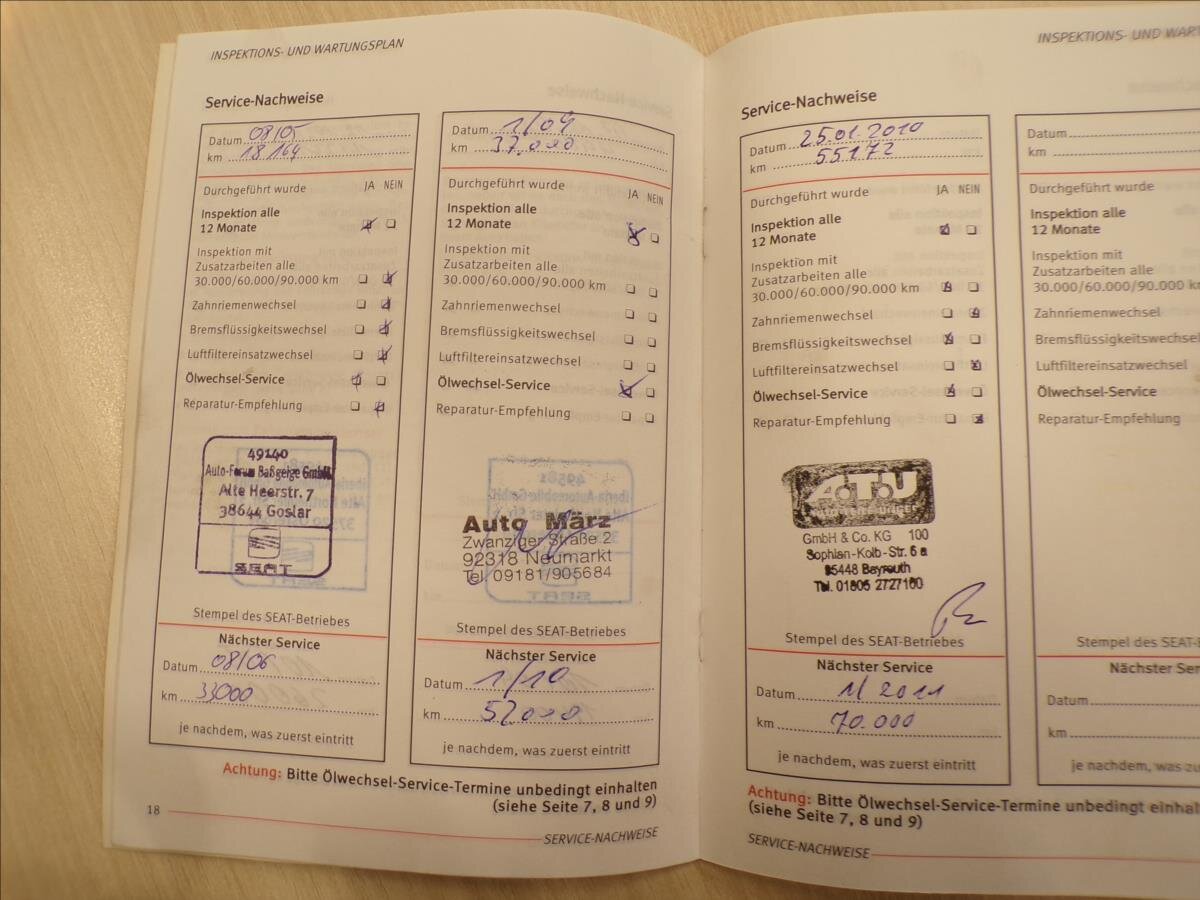 INSPEKTIONS- UND WARTUNGSPLAN
Service-Nachweise
Datum 08/05
km 18 164
Durchgeführt wurde JA NEIN
Inspektion alle
12 Monate
Inspektion mit
Zusatzarbeiten alle
30.000/60.000/90.000 km
Zahnriemenwechsel
Bremsflüssigkeitswechsel
Luftfiltereinsatzwechsel
Ölwechsel-Service
Reparatur-Empfehlung
49140
Auto-Forum Baßgeige GmbH
Alte Heerstr. 7
38644 Goslar
SEAT
Stempel des SEAT-Betriebes
Nächster Service
Datum 08/06
km 33000
je nachdem, was zuerst eintritt
Datum 1/09
km 37.000
Durchgeführt wurde JA NEIN
Inspektion alle
12 Monate
Inspektion mit
Zusatzarbeiten alle
30.000/60.000/90.000 km
Zahnriemenwechsel
Bremsflüssigkeitswechsel
Luftfiltereinsatzwechsel
Ölwechsel-Service
Reparatur-Empfehlung
Auto März
Zwanziger Straße 2
92318 Neumarkt
Tel. 09181/905684
Stempel des SEAT-Betriebes
Nächster Service
Datum 1/10
km 52000
je nachdem, was zuerst eintritt
Achtung: Bitte Ölwechsel-Service-Termine unbedingt einhalten
(siehe Seite 7, 8 und 9)
18
SERVICE-NACHWEISE
INSPEKTIONS- UND WART
Service-Nachweise
Datum 25.01.2010
km 55172
Durchgeführt wurde JA NEIN
Inspektion alle
12 Monate
Inspektion mit
Zusatzarbeiten alle
30.000/60.000/90.000 km
Zahnriemenwechsel
Bremsflüssigkeitswechsel
Luftfiltereinsatzwechsel
Ölwechsel-Service
Reparatur-Empfehlung
A.T.U
GmbH & Co. KG 100
Sophian-Kolb-Str. 6 a
95448 Bayreuth
Tel. 01805 2727100
Stempel des SEAT-Betriebes
Nächster Service
Datum 1/2011
km 70.000
je nachdem, was zuerst eintritt
Datum
km
Durchgeführt wurde
Inspektion alle
12 Monate
Inspektion mit
Zusatzarbeiten alle
30.000/60.000/90.000 k
Zahnriemenwechsel
Bremsflüssigkeitswechse
Luftfiltereinsatzwechsel
Ölwechsel-Service
Reparatur-Empfehlung
Stempel des SEAT-B
Nächster Servi
Datum
km
je nachdem, was zu
Achtung: Bitte Ölwechsel-Service-Termine unbedingt einhal
(siehe Seite 7, 8 und 9)
SERVICE-NACHWEISE